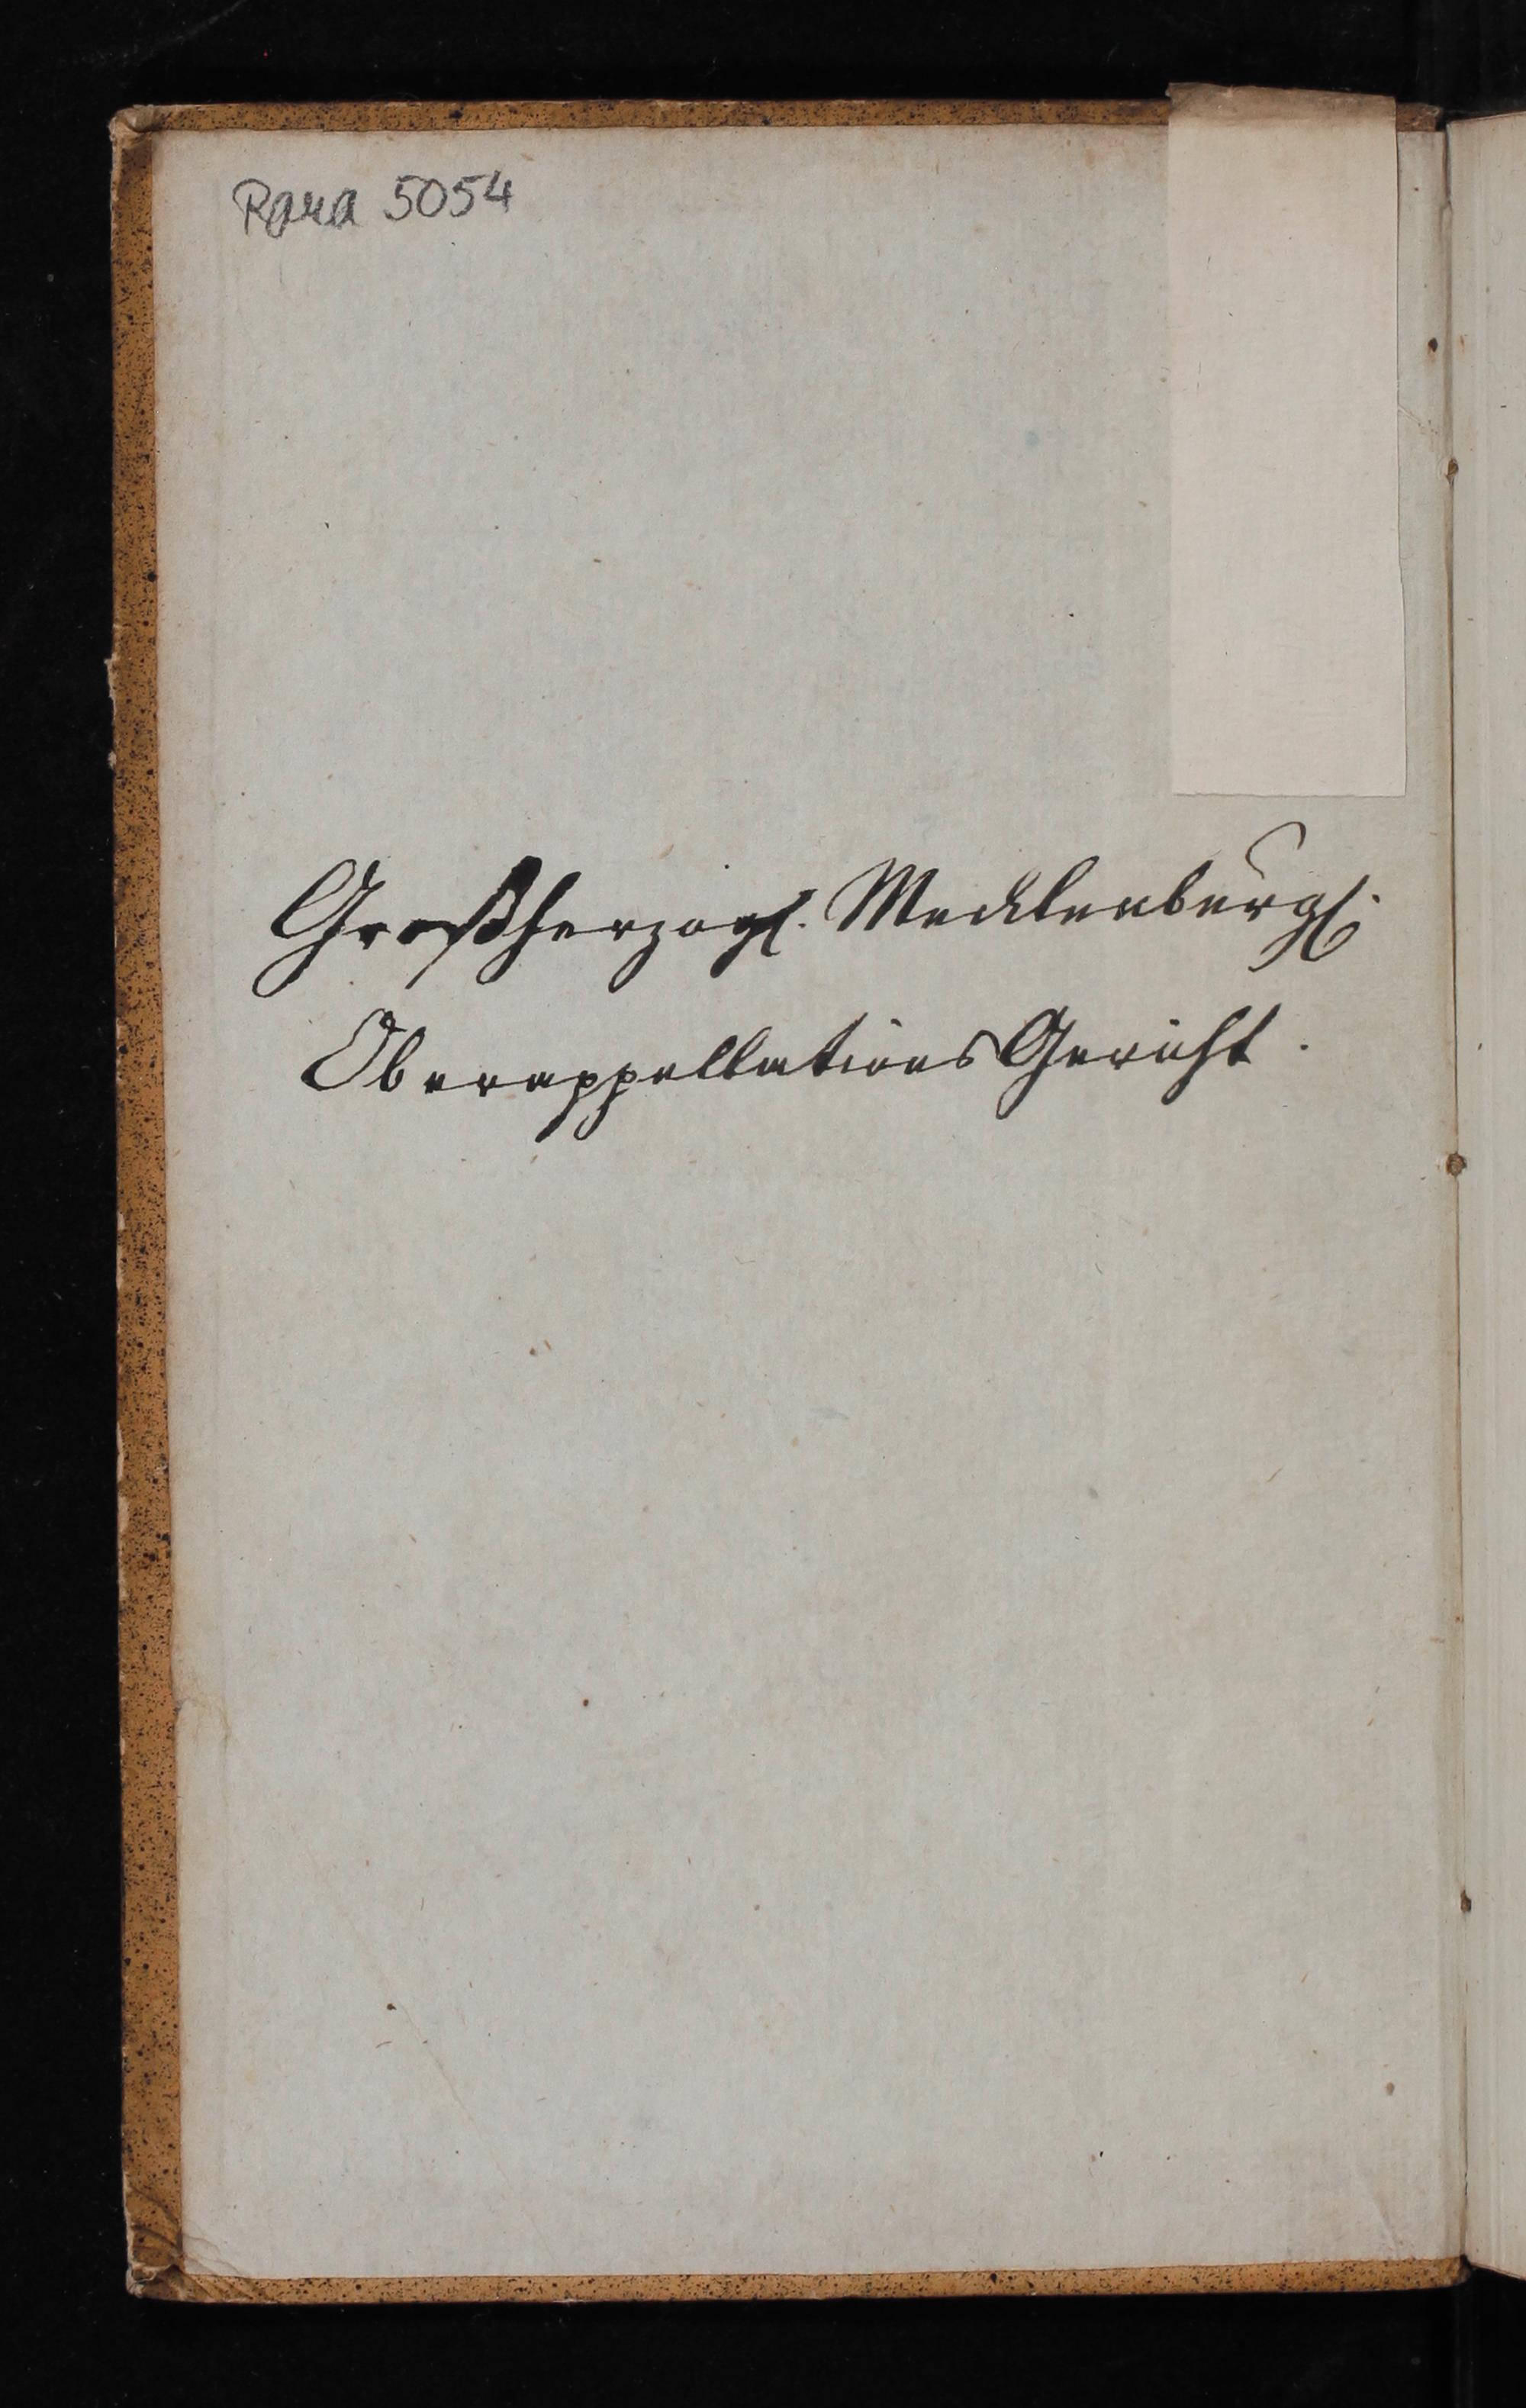 Rara 5054
Großherzogl. Mecklenburgl.
Oberappellations Gericht.